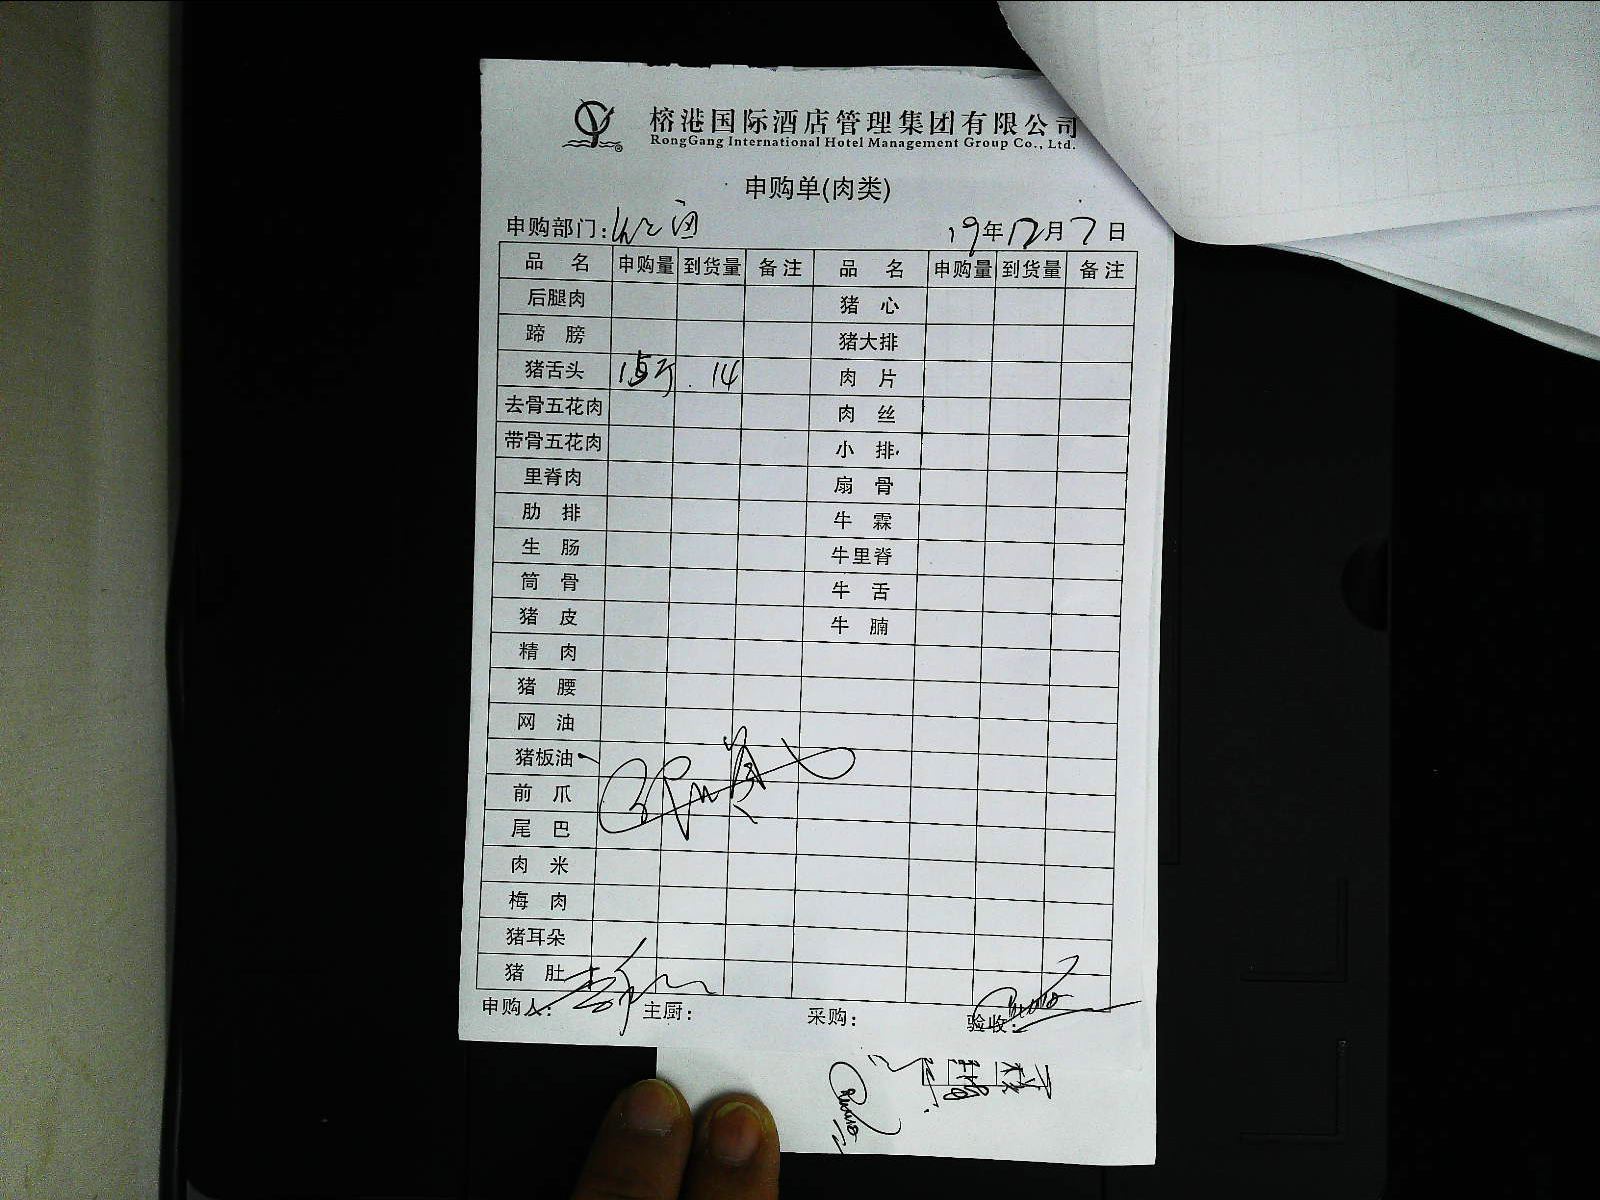 榕港国际酒店管理集团有限公司
RongGang International Hotel Management Group Co., Ltd.
申购单(肉类)
申购部门: 19年12月7日
品 名 申购量 到货量 备注 品 名 申购量 到货量 备注
后腿肉 猪 心
蹄 膀 猪大排
猪舌头 15斤 14 肉 片
去骨五花肉 肉 丝
带骨五花肉 小 排
里脊肉 扇 骨
肋 排 牛 霖
生 肠 牛里脊
筒 骨 牛 舌
猪 皮 牛 腩
精 肉
猪 腰
网 油
猪板油
前 爪
尾 巴
肉 米
梅 肉
猪耳朵
猪 肚
申购人: 主厨: 采购: 验收: